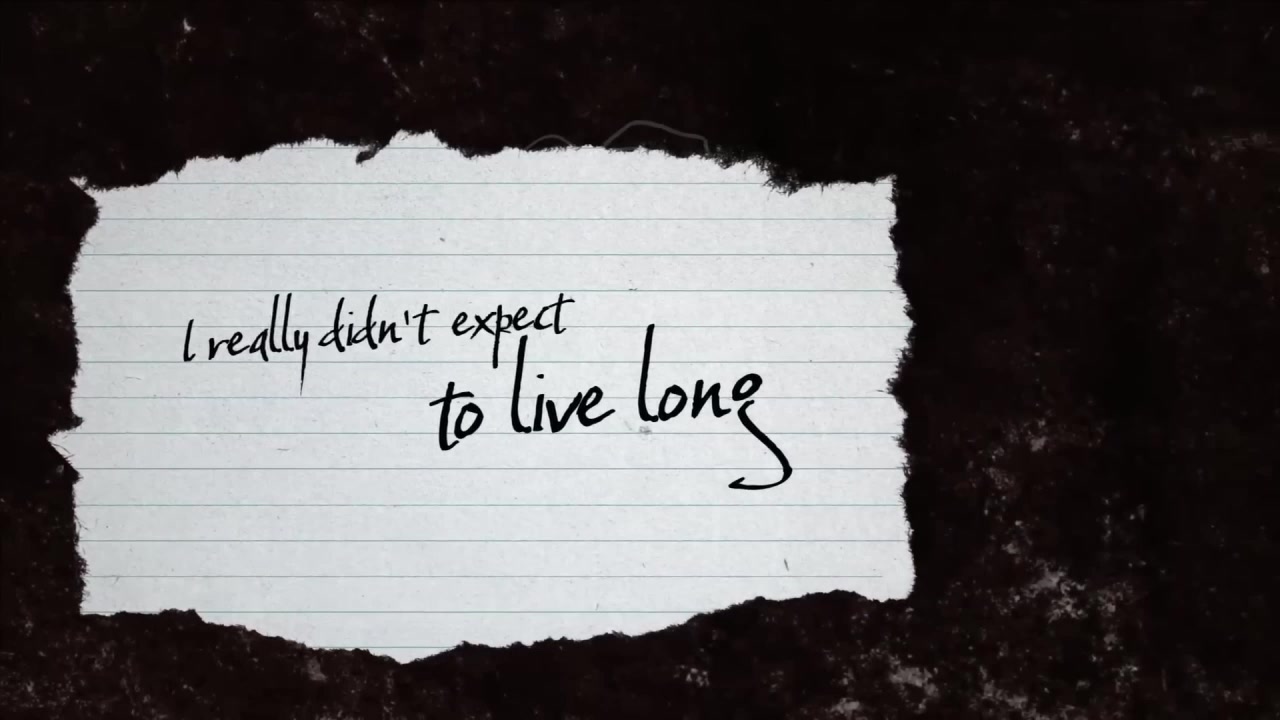 I really didn't expect
to live long